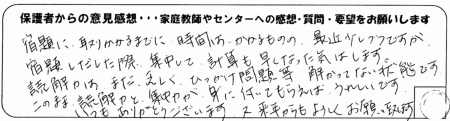 保護者からの意見感想・・・家庭教師やセンターへの感想・質問・要望をお願いします
宿題に、取りかかるまでに 時間は、かかるものの、最近少しづつですが、
宿題しだした際、集中して、計算も早くなった気はします。
読解力は、まだ、乏しく、ひっかけ問題等、解かってない状態です
このまま、読解力と、集中力が、身に付いてもらえば、うれしいです。
いつもありがとうございます 又来年からもよろしくお願い致します